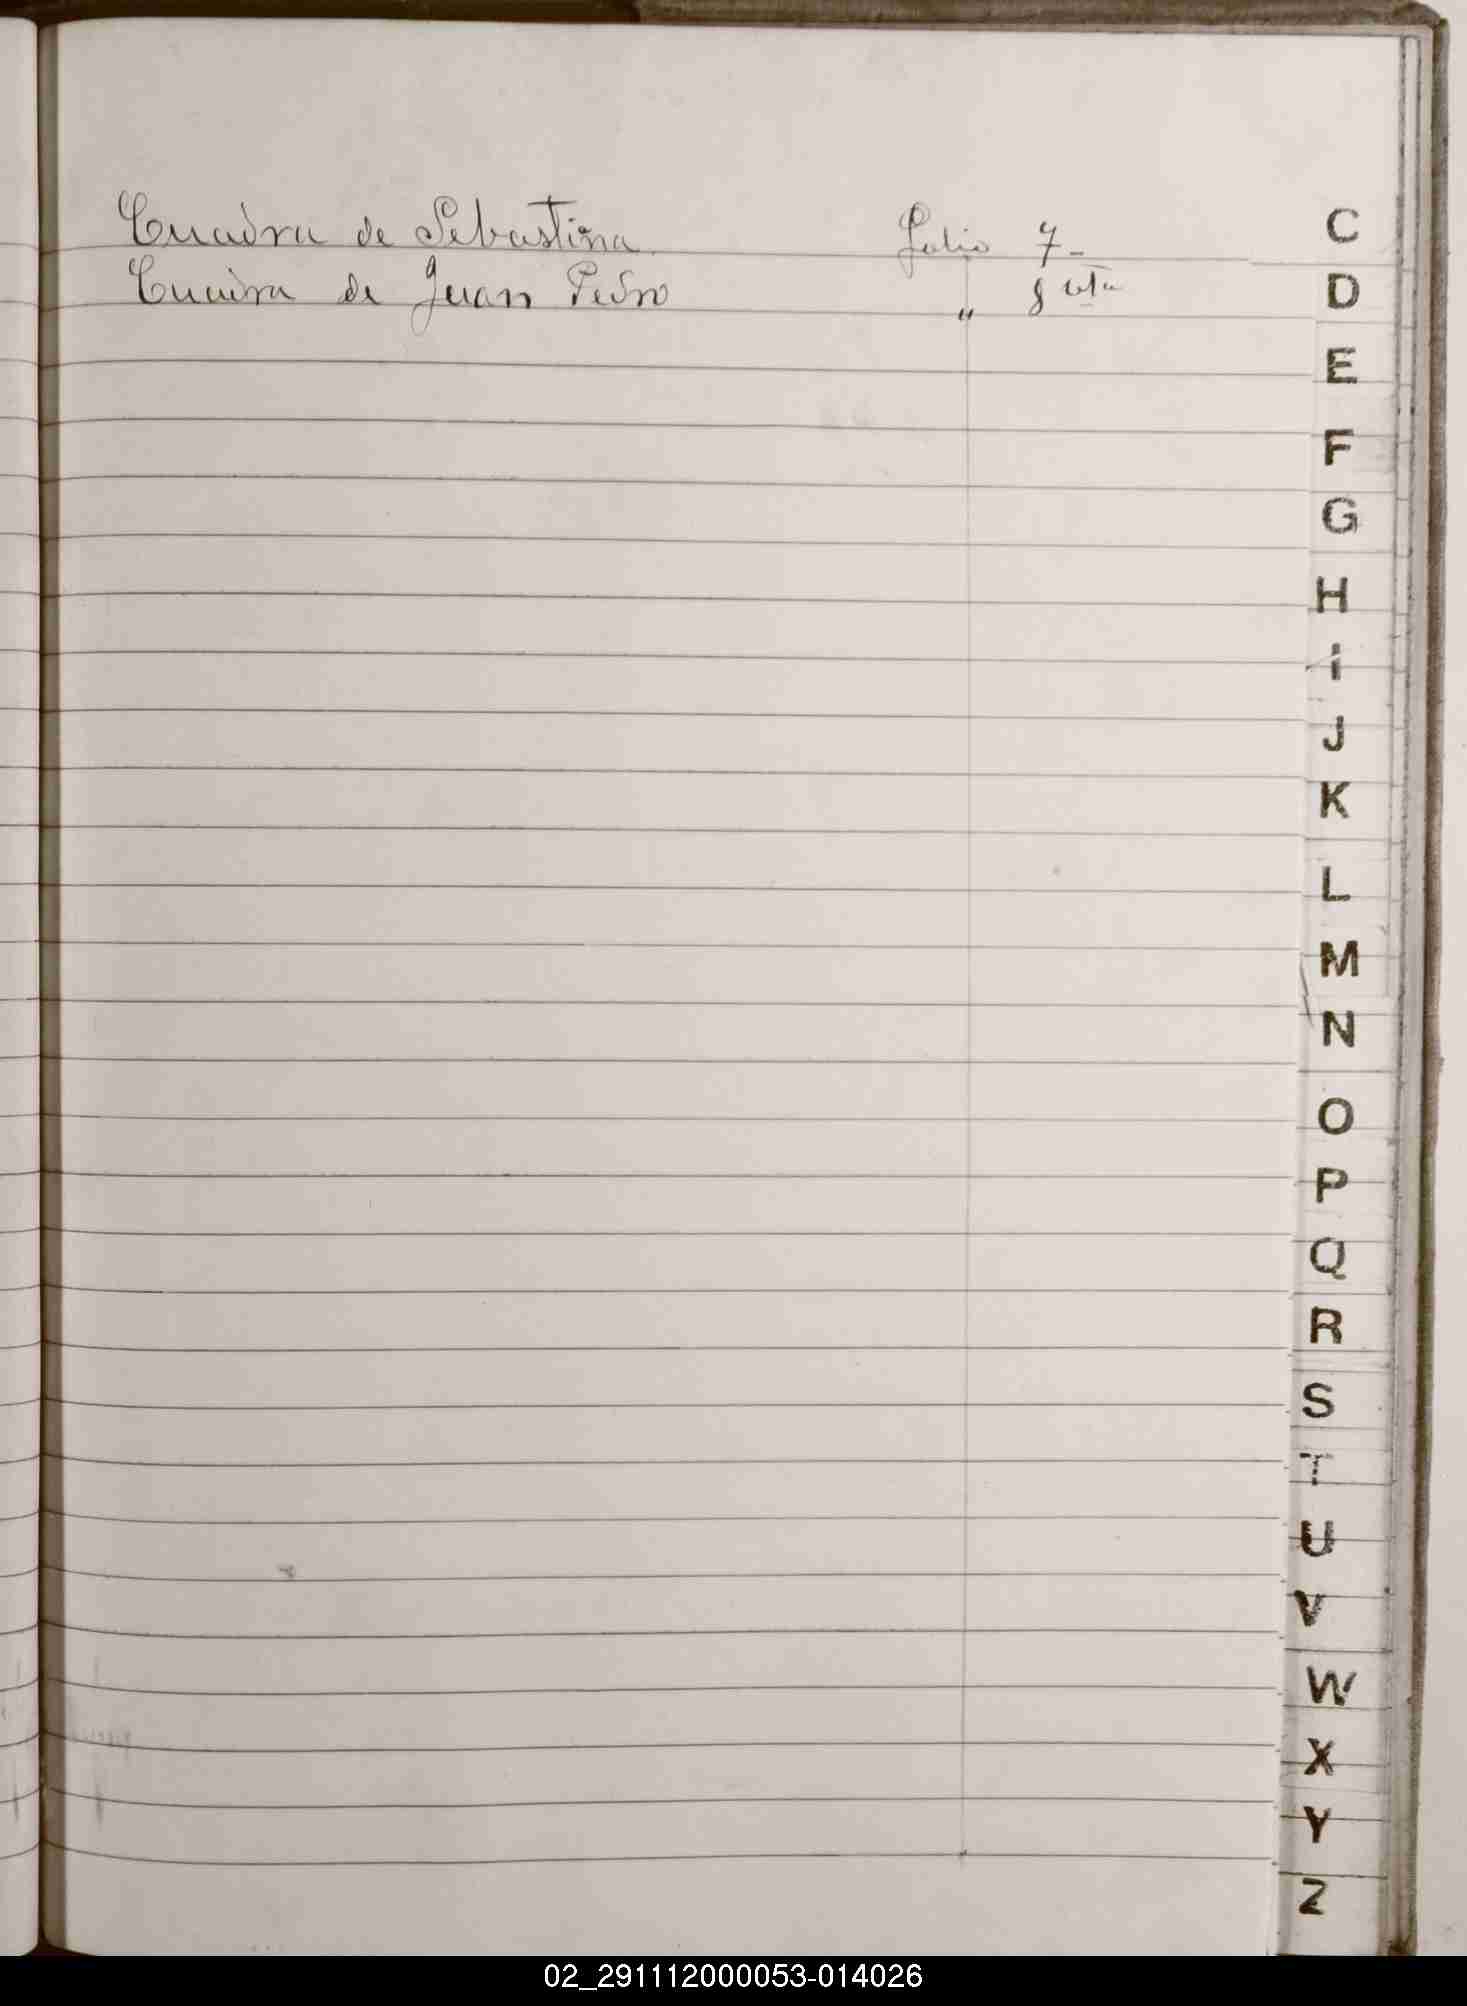 Cuadra de Sebastina Julio 7-
Cuadra de Juan Pedro " 8
C
D
E
F
G
H
I
J
K
L
M
N
O
P
Q
R
S
T
U
V
W
X
Y
Z
02_291112000053-014026